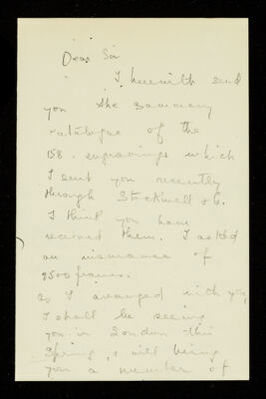 Dear Sir
I herewith send
you the summary
catalogue of the
158 engravings which
I sent you recently
through Stockwell & Co.
I think you have
received them. I asked
an insurance of
9500 francs.
As I arranged with you,
I shall be seeing
you in London this
Spring, & will bring
you a number of